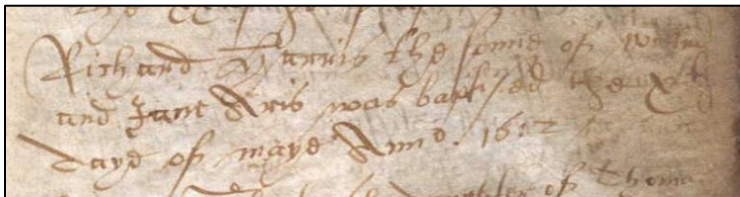 the
Richard Harris the sonne of Willm
and Jane Aris was baptised the xth
daye of maye Anno. 1612
daughter of Thoma